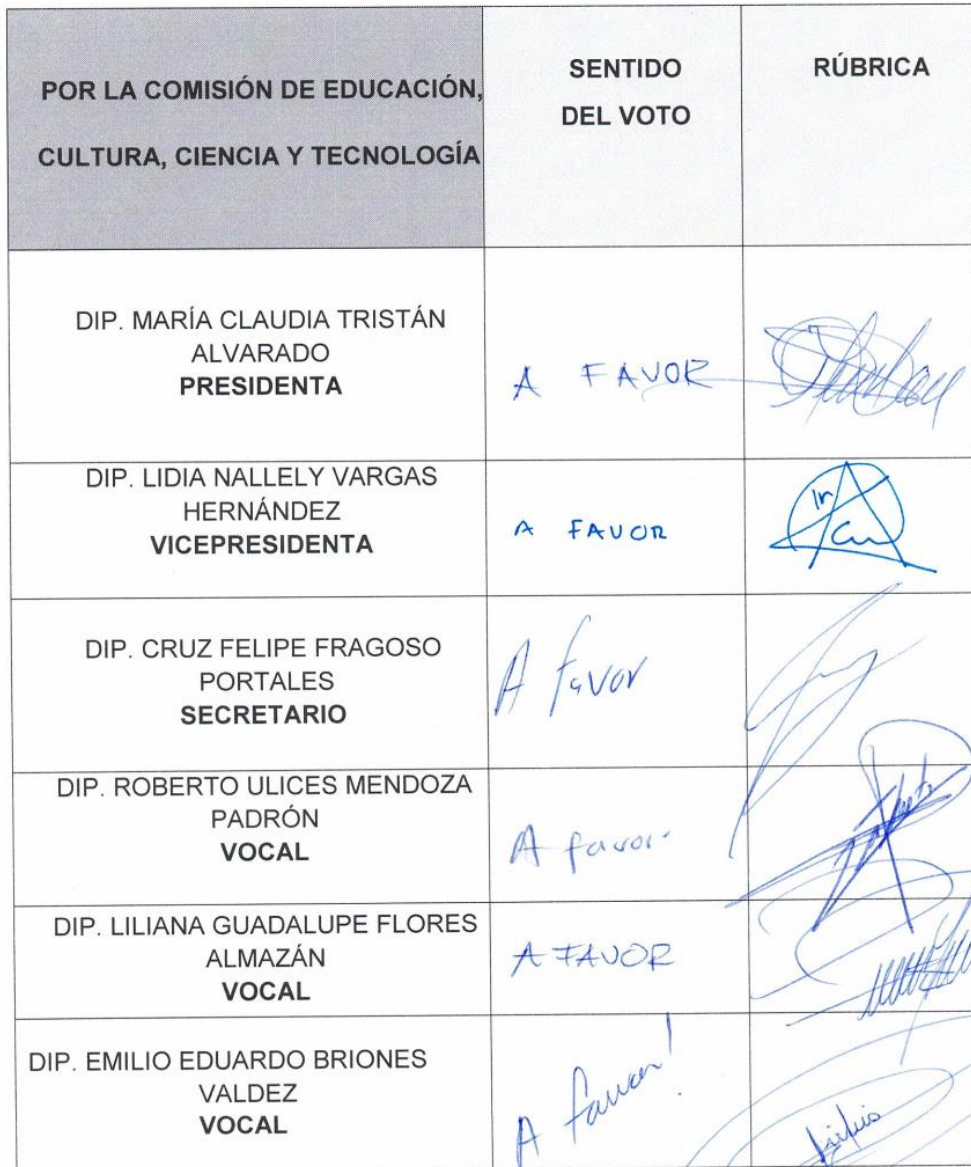 POR LA COMISIÓN DE EDUCACIÓN,
CULTURA, CIENCIA Y TECNOLOGÍA
SENTIDO
DEL VOTO
RÚBRICA
DIP. MARÍA CLAUDIA TRISTÁN
ALVARADO
PRESIDENTA
A FAVOR
DIP. LIDIA NALLELY VARGAS
HERNÁNDEZ
VICEPRESIDENTA
A FAVOR
DIP. CRUZ FELIPE FRAGOSO
PORTALES
SECRETARIO
A favor
DIP. ROBERTO ULICES MENDOZA
PADRÓN
VOCAL
A favor
DIP. LILIANA GUADALUPE FLORES
ALMAZÁN
VOCAL
A FAVOR
DIP. EMILIO EDUARDO BRIONES
VALDEZ
VOCAL
A favor!